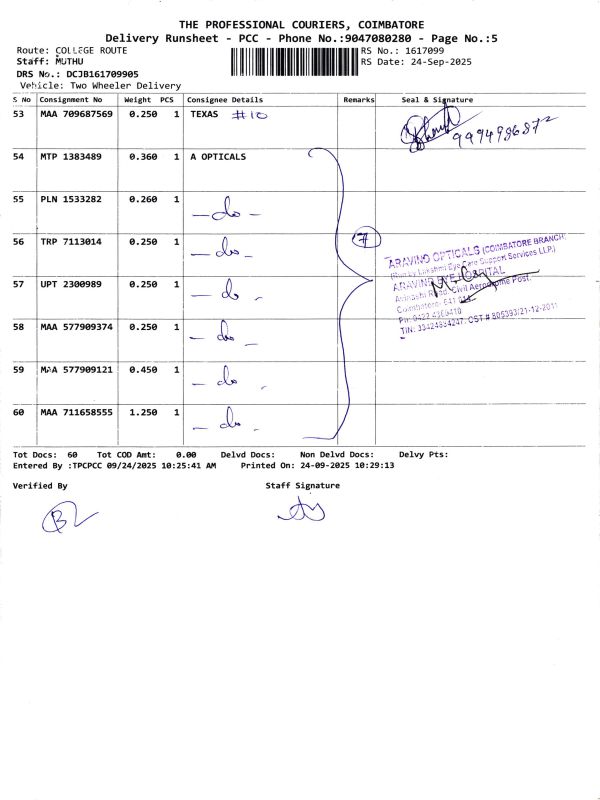 THE PROFESSIONAL COURIERS, COIMBATORE
Delivery Runsheet - PCC - Phone No.:9047080280 - Page No.:5
Route: COLLEGE ROUTE
RS No.: 1617099
Staff: MUTHU
RS Date: 24-Sep-2025
DRS No.: DCJB161709905
Vehicle: Two Wheeler Delivery
S No Consignment No Weight PCS Consignee Details Remarks Seal & Signature
53 MAA 709687569 0.250 1 TEXAS #10
54 MTP 1383489 0.360 1 A OPTICALS
55 PLN 1533282 0.260 1 - do -
56 TRP 7113014 0.250 1 - do -
7
57 UPT 2300989 0.250 1 - do -
58 MAA 577909374 0.250 1 - do -
59 MAA 577909121 0.450 1 - do -
60 MAA 711658555 1.250 1 - do -
ARAVIND OPTICALS (COIMBATORE BRANCH)
Eye Care Support Services LLP.)
ARAVIND EYE HOSPITAL
Avinashi Road, Civil Aerodrome Post,
Coimbatore- 641 014.
TIN: 33424884247. CST # 805393/21-12-2011
Tot Docs: 60 Tot COD Amt: 0.00 Delvd Docs: Non Delvd Docs: Delvy Pts:
Entered By :TPCPCC 09/24/2025 10:25:41 AM Printed On: 24-09-2025 10:29:13
Verified By Staff Signature